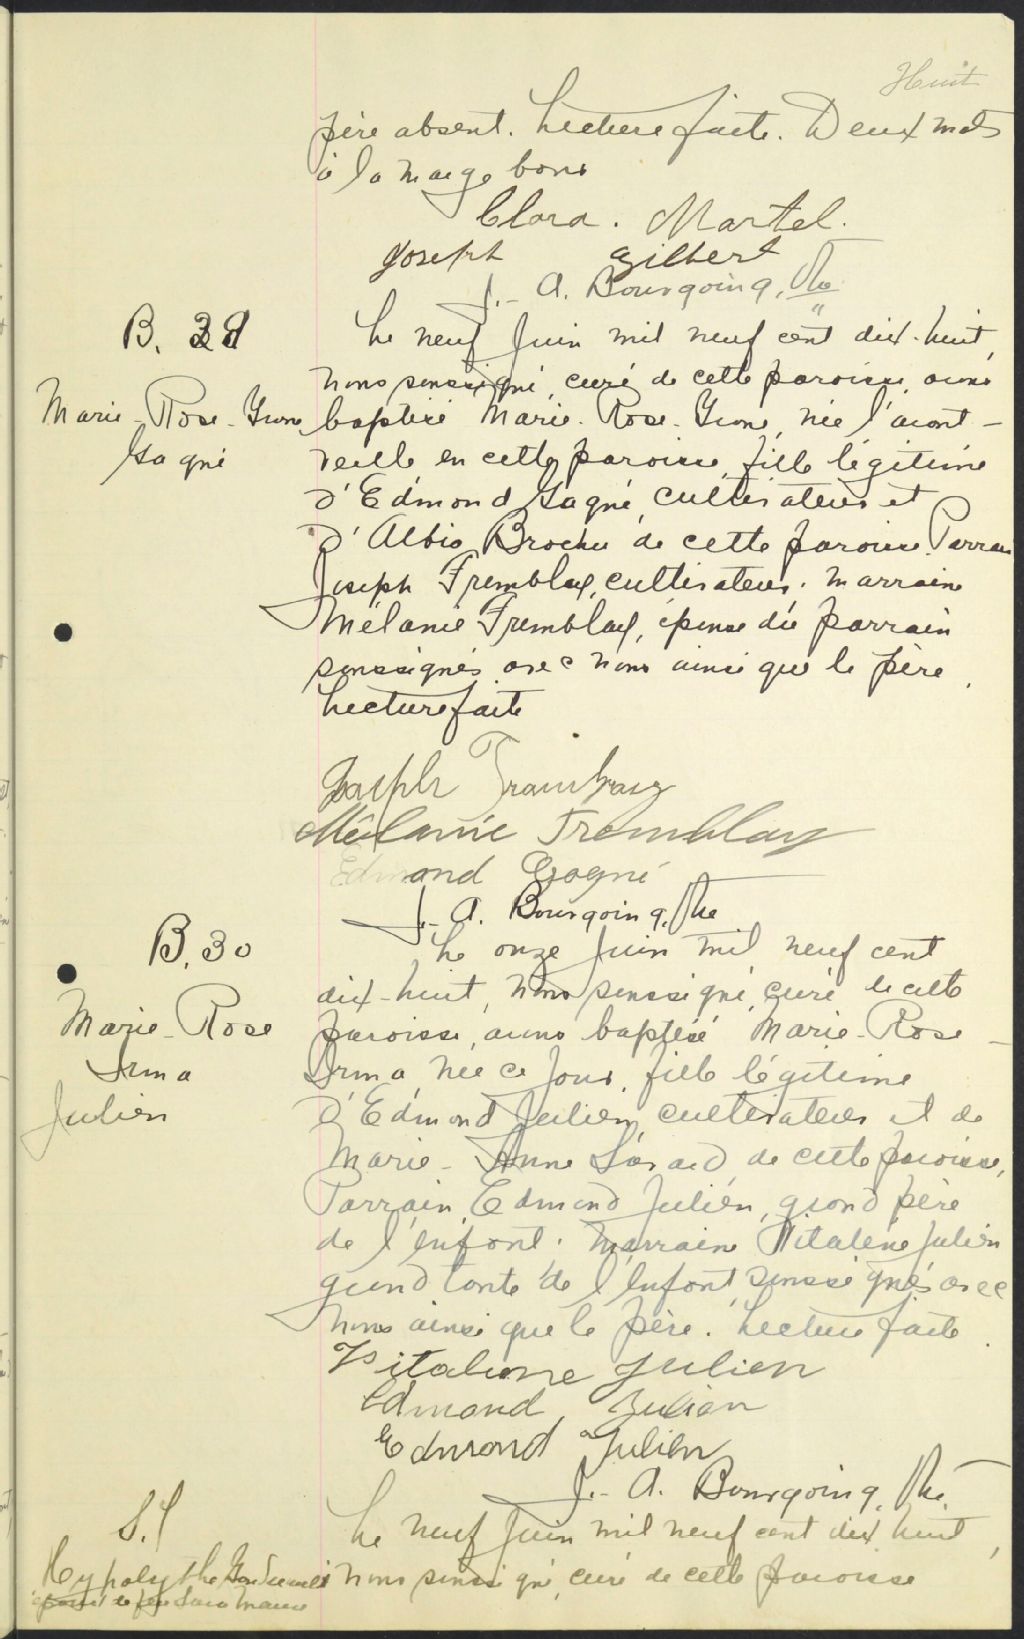 Huit
père absent. Lecture faite. Deux mots
à la marge bons
Clara. Martel.
Joseph Gilbert
J.- A. Bourgoing, Ptre
B. 29
Marie-Rose-Yvone
Gagné
Le neuf Juin mil neuf cent dix-huit,
nous soussigné, curé de cette paroisse, avons
baptisé Marie-Rose-Yvone, née l'avant-
veille en cette paroisse, fille légitime
d'Edmond Gagné, cultivateur et
d'Albia Brochu de cette paroisse. Parrain
Joseph Tremblay, cultivateur. Marraine
Mélanie Tremblay, épouse du parrain
soussignés avec nous ainsi que le père.
Lecture faite
Joseph Trambay
Mélanie Tremblay
Edmond Gagné
J.- A. Bourgoing, Ptre
B. 30
Marie-Rose
Irma
Julien
Le onze Juin mil neuf cent
dix-huit, nous soussigné, curé de cette
paroisse, avons baptisé Marie-Rose-
Irma, née ce jour, fille légitime
d'Edmond Julien, cultivateur et de
Marie-Anne de cette paroisse,
Parrain, Edmond Julien, grand père
de l'enfant. Marraine Vitaline Julien
grand tante de l'enfant, soussignés avec
nous ainsi que le père. Lecture faite.
Vitaline Julien
Edmond Julien
Edmond Julien
J.- A. Bourgoing, Ptre
S.
Hypolythe
épouse de feu
Le neuf Juin mil neuf cent dix huit,
nous soussigné, curé de cette paroisse